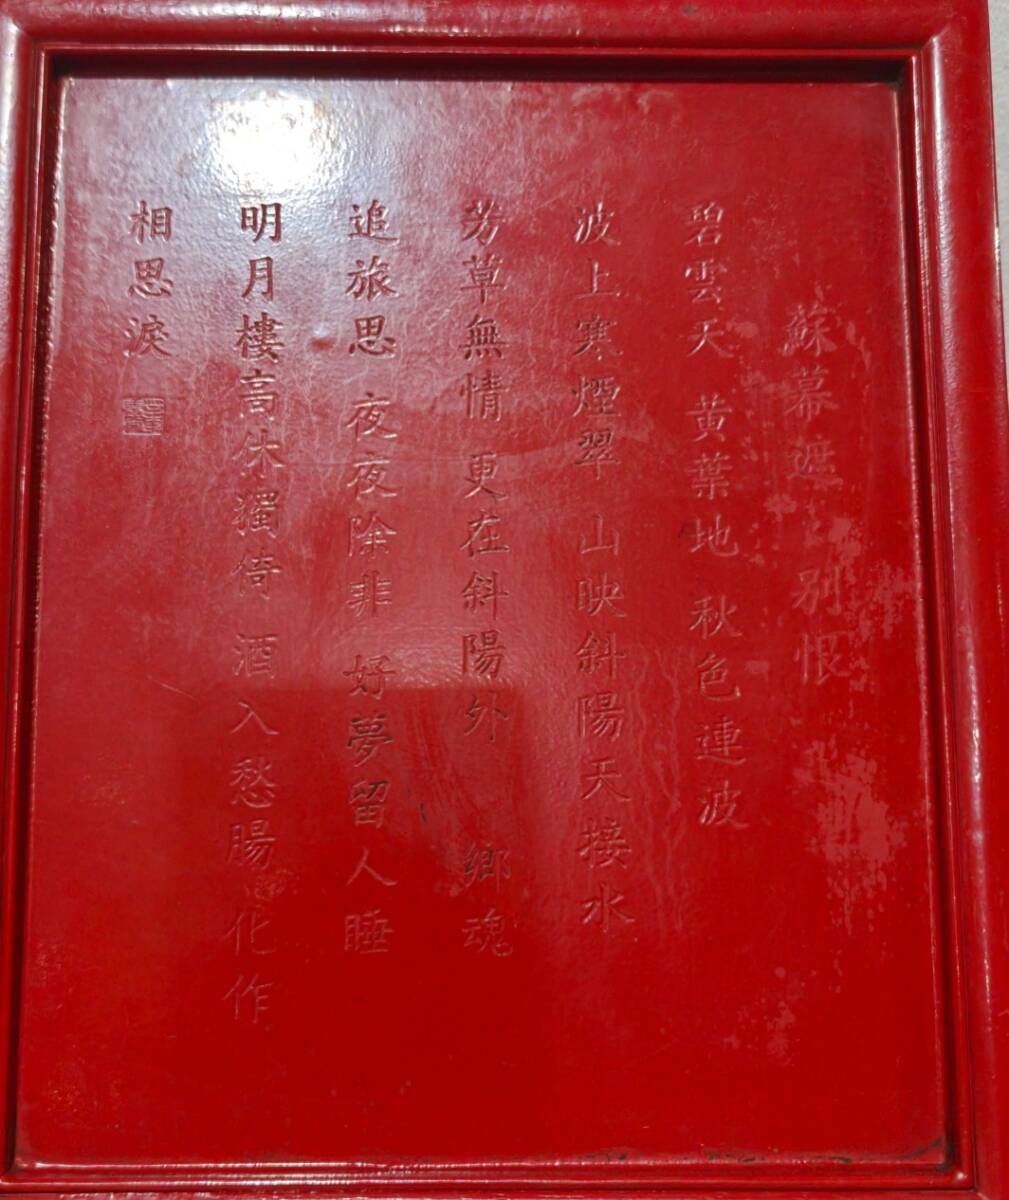 蘇幕遮 别恨
碧雲天 黄葉地 秋色連波
波上寒煙翠 山映斜陽天接水
芳草無情 更在斜陽外 鄉魂
追旅思 夜夜除非 好夢留人睡
明月樓高休獨倚 酒入愁腸 化作
相思淚